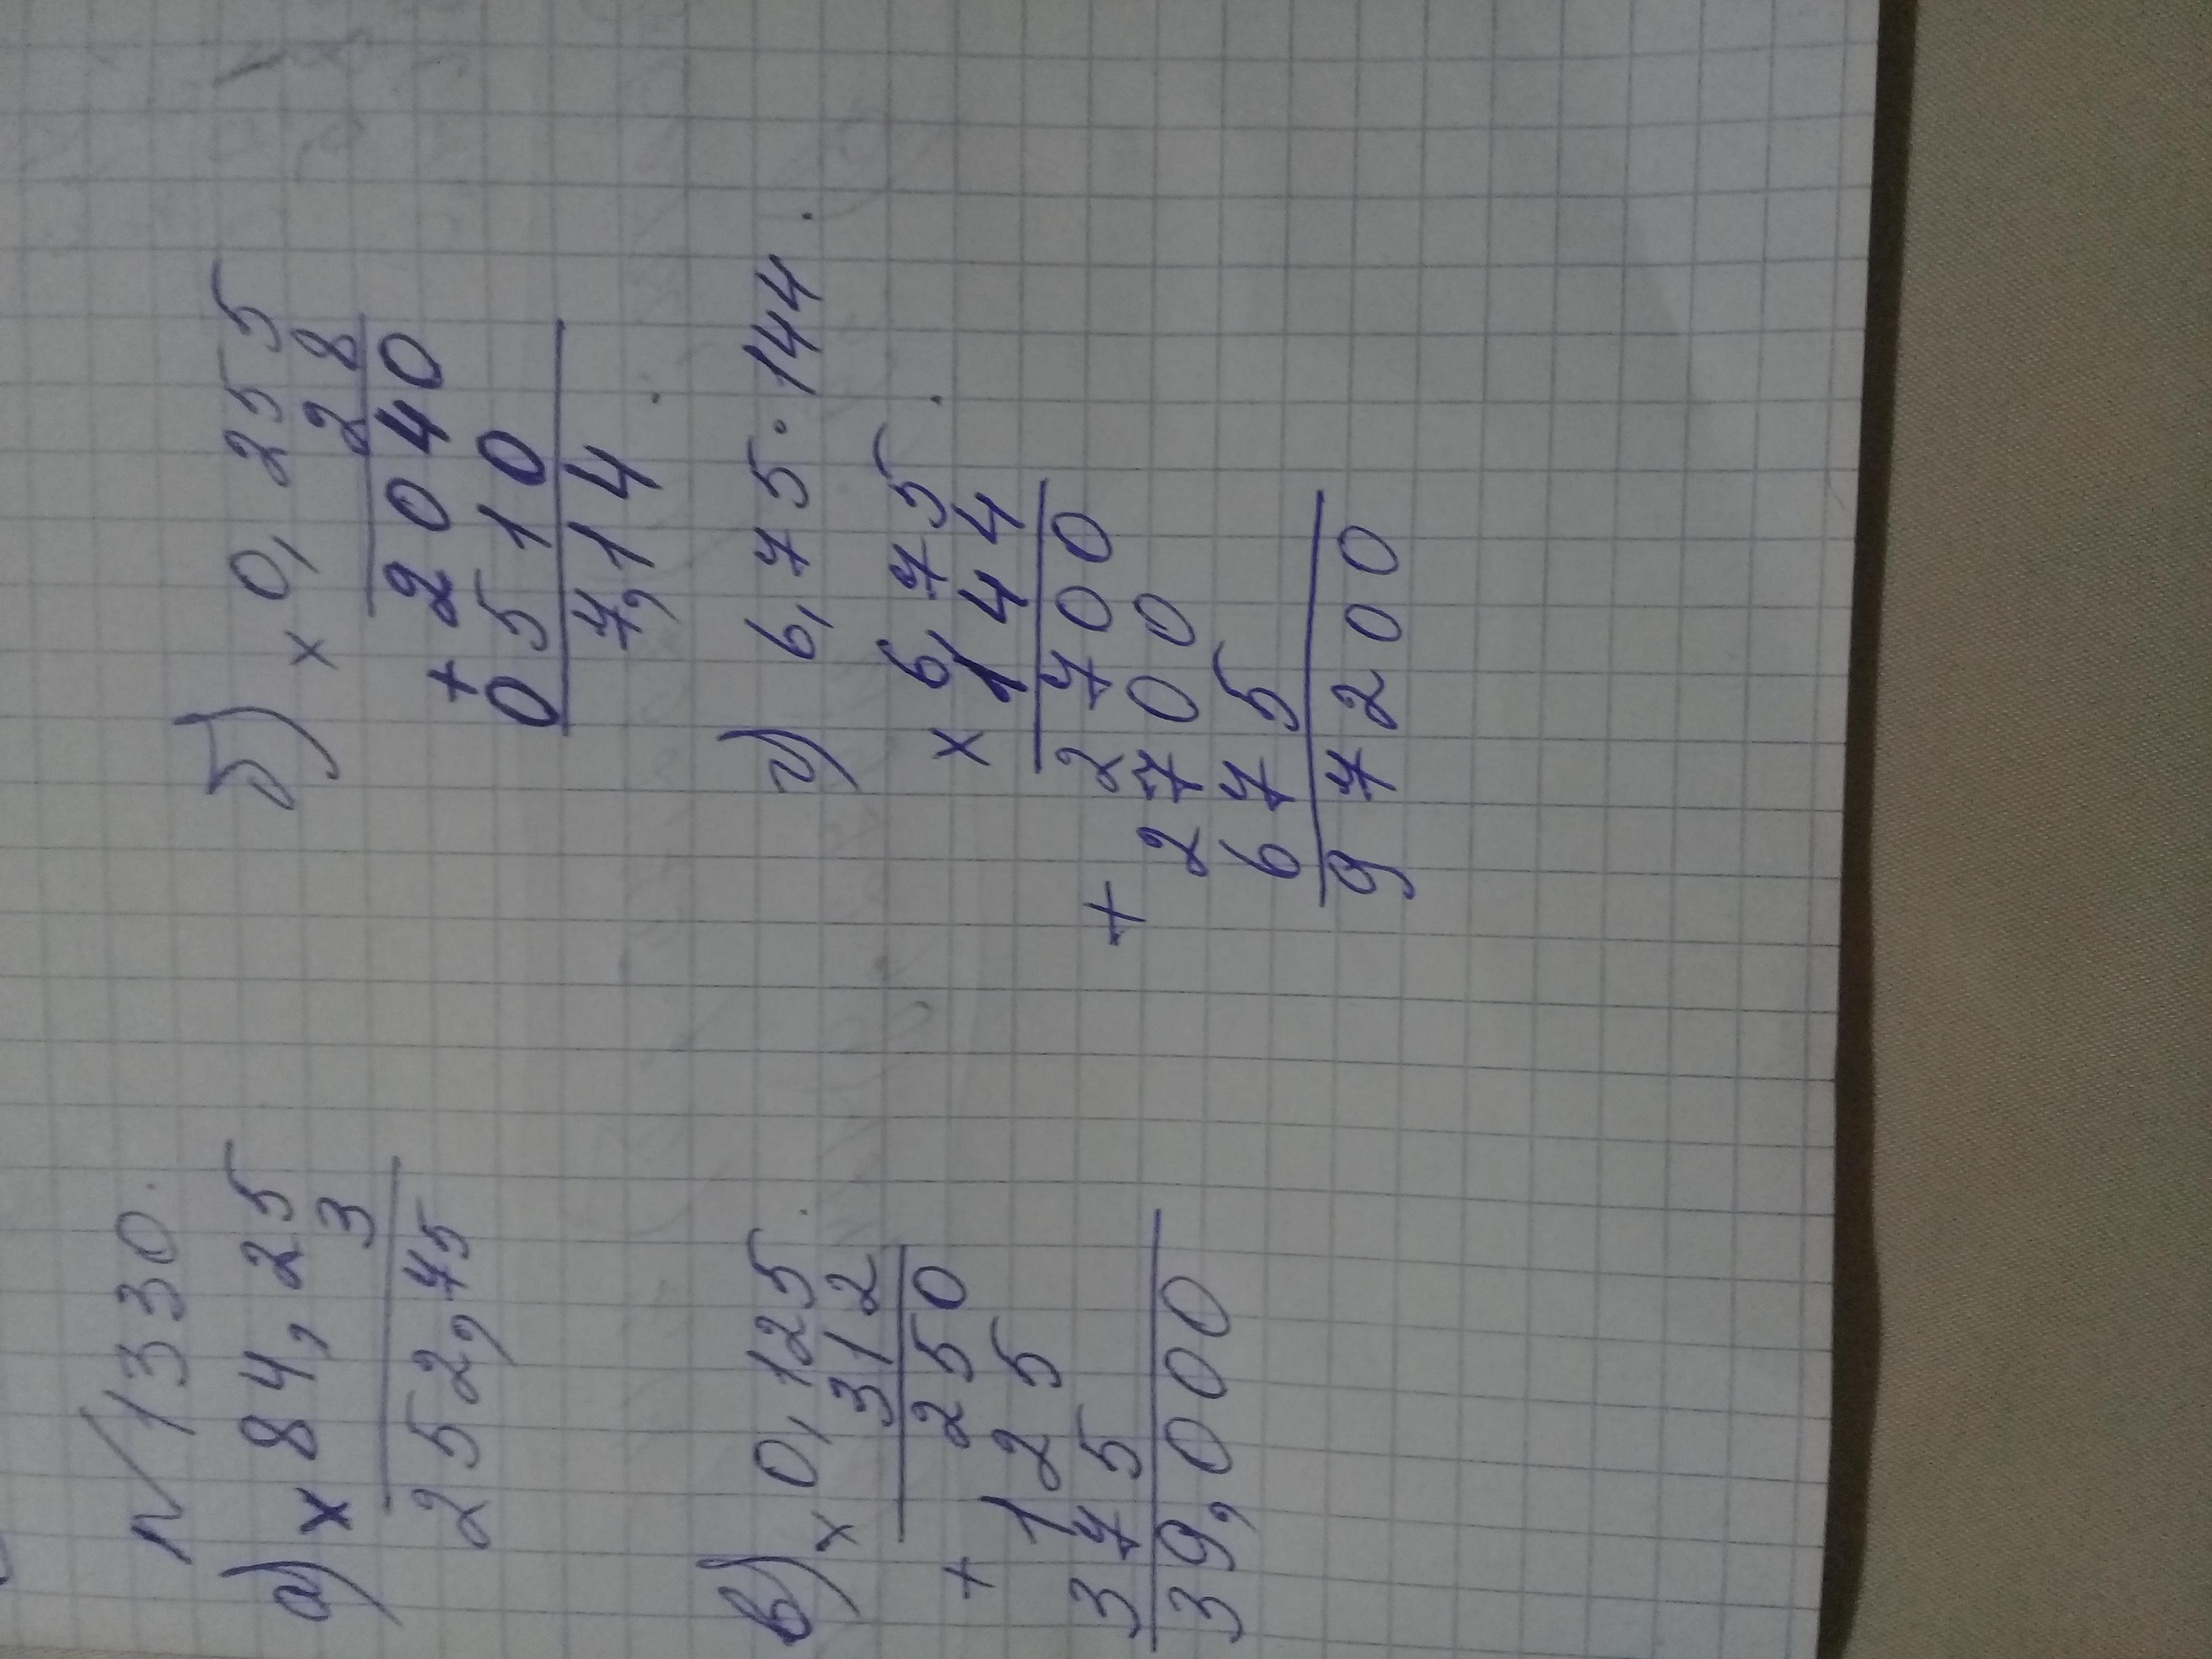 N 1330.
а) × 84,25
3
252,75
б) × 0,255
28
2040
+
0510
7,14
в) × 0,125
312
250
+ 125
375
39,000
г) 6,75·144.
× 6,75
144
2700
+ 2700
675
97200